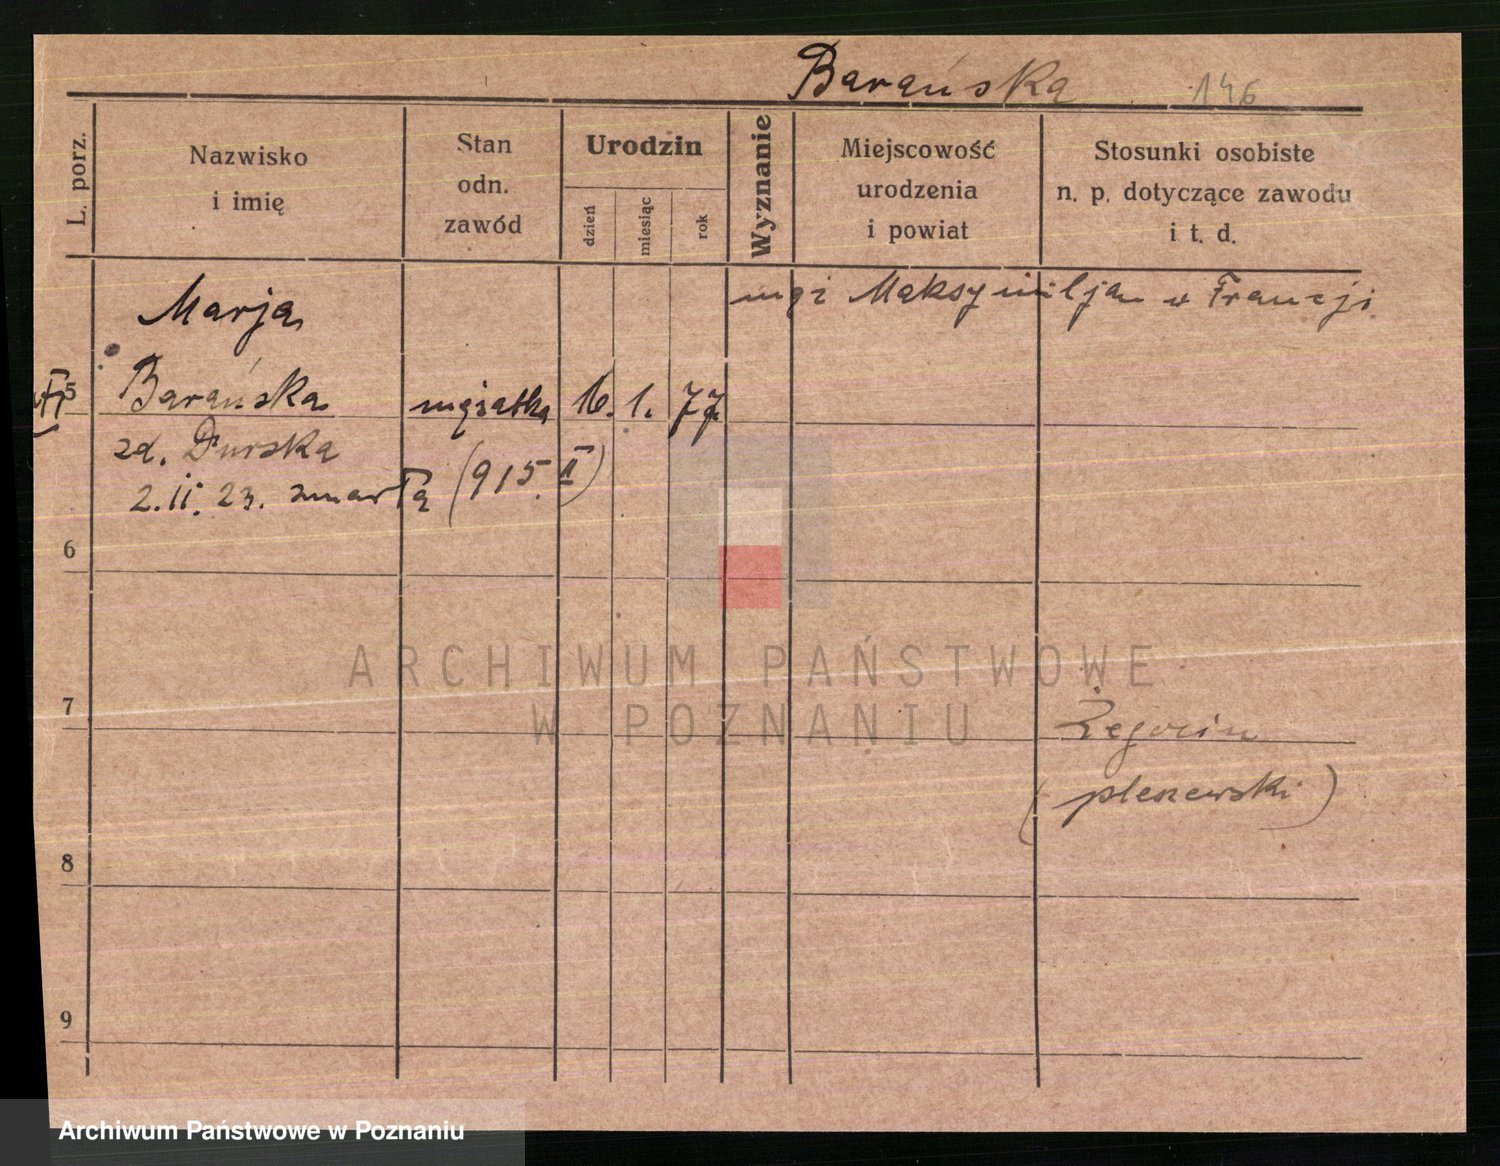 Barańska 146
L. porz.
Nazwisko i imię
Stan odn. zawód
Urodzin
dzień miesiąc rok
Wyznanie
Miejscowość urodzenia i powiat
Stosunki osobiste n. p. dotyczące zawodu i t. d.
mąż Maksymiljan w Francji
Marja
5 Barańska mężatka 16. 1. 77
zd. Durska
2.II.23. zmarła (915 II)
6
ARCHIWUM PAŃSTWOWE
W POZNANIU
7
Żegocin
(pleszewski)
8
9
Archiwum Państwowe w Poznaniu